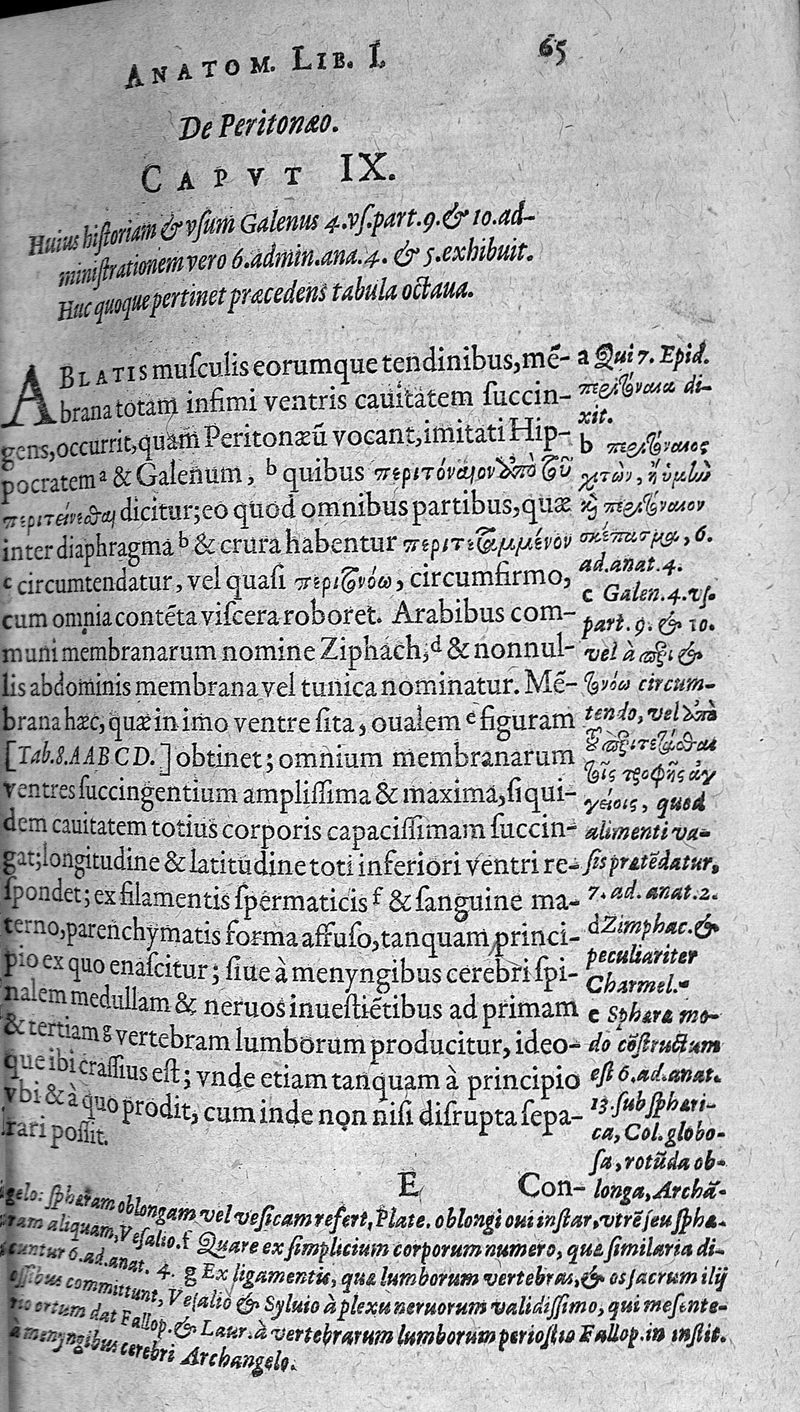 ANATOM. LIB. I. 65
De Peritonæo.
CAPVT IX.
Huius historiam & vsum Galenus 4. vs. part. 9. & 10. ad-
ministrationem vero 6. admin. ana. 4. & 5. exhibuit.
Huc quoque pertinet præcedens tabula octaua.
ABLATIS musculis eorumque tendinibus, mē-
brana totam infimi ventris cauitatem succin-
gens, occurrit, quam Peritonæū vocant, imitati Hip-
pocratem a & Galenum, b quibus περιτόναιον ἀπὸ τοῦ
περιτείνεσθαι dicitur; eo quod omnibus partibus, quæ
inter diaphragma b & crura habentur περιτεταμμένον
c circumtendatur, vel quasi περιτονόω, circumfirmo,
cum omnia contēta viscera roboret. Arabibus com-
muni membranarum nomine Ziphach, d & nonnul-
lis abdominis membrana vel tunica nominatur. Mē-
brana hæc, quæ in imo ventre sita, oualem e figuram
[Tab. 8. AABCD.] obtinet; omnium membranarum
ventres succingentium amplissima & maxima, siqui-
dem cauitatem totius corporis capacissimam succin-
gat; longitudine & latitudine toti inferiori ventri re-
spondet; ex filamentis spermaticis f & sanguine ma-
terno, parenchymatis forma affuso, tanquam princi-
pio ex quo enascitur; siue à menyngibus cerebri spi-
nalem medullam & neruos inuestiētibus ad primam
& tertiam g vertebram lumborum producitur, ideo-
que ibi crassius est; vnde etiam tanquam à principio
vbi & à quo prodit, cum inde non nisi disrupta sepa-
rari possit.
E Con-
a Qui 7. Epid.
περιτόναια di-
xit.
b περιτόναιος
χιτὼν, ἢ ὑμὴν
καὶ περιτόναιον
σκέπασμα, 6.
ad. anat. 4.
c Galen. 4. vs.
part. 9. & 10.
vel à περὶ &
τονόω circum-
tendo, vel ἀπὸ
τοῦ περιτετάσθαι
τοῖς τροφῆς ἀγ
γείοις, quod
alimenti va-
sis prætēdatur,
7. ad. anat. 2.
d Zimphac. &
peculiariter
Charmel.
e Sphæræ mo-
do cōstructum
est 6. ad. anat.
13. subsphæri-
ca, Col. globo-
sa, rotūda ob-
longa, Archā-
gelo: sphæram oblongam vel vesicam refert, Plate. oblongi oui instar, vtrē seu sphæ-
ram aliquam, Vesalio. f Quare ex simplicium corporum numero, quæ similaria di-
cuntur 6. ad. anat. 4. g Ex ligamentis, quæ lumborum vertebras, & os sacrum ilij
ossibus committunt, Vesalio & Syluio à plexu neruorum validissimo, qui mesente-
rio ortum dat Fallop. & Laur. à vertebrarum lumborum periostio Fallop. in instit.
à menyngibus cerebri Archangelo.